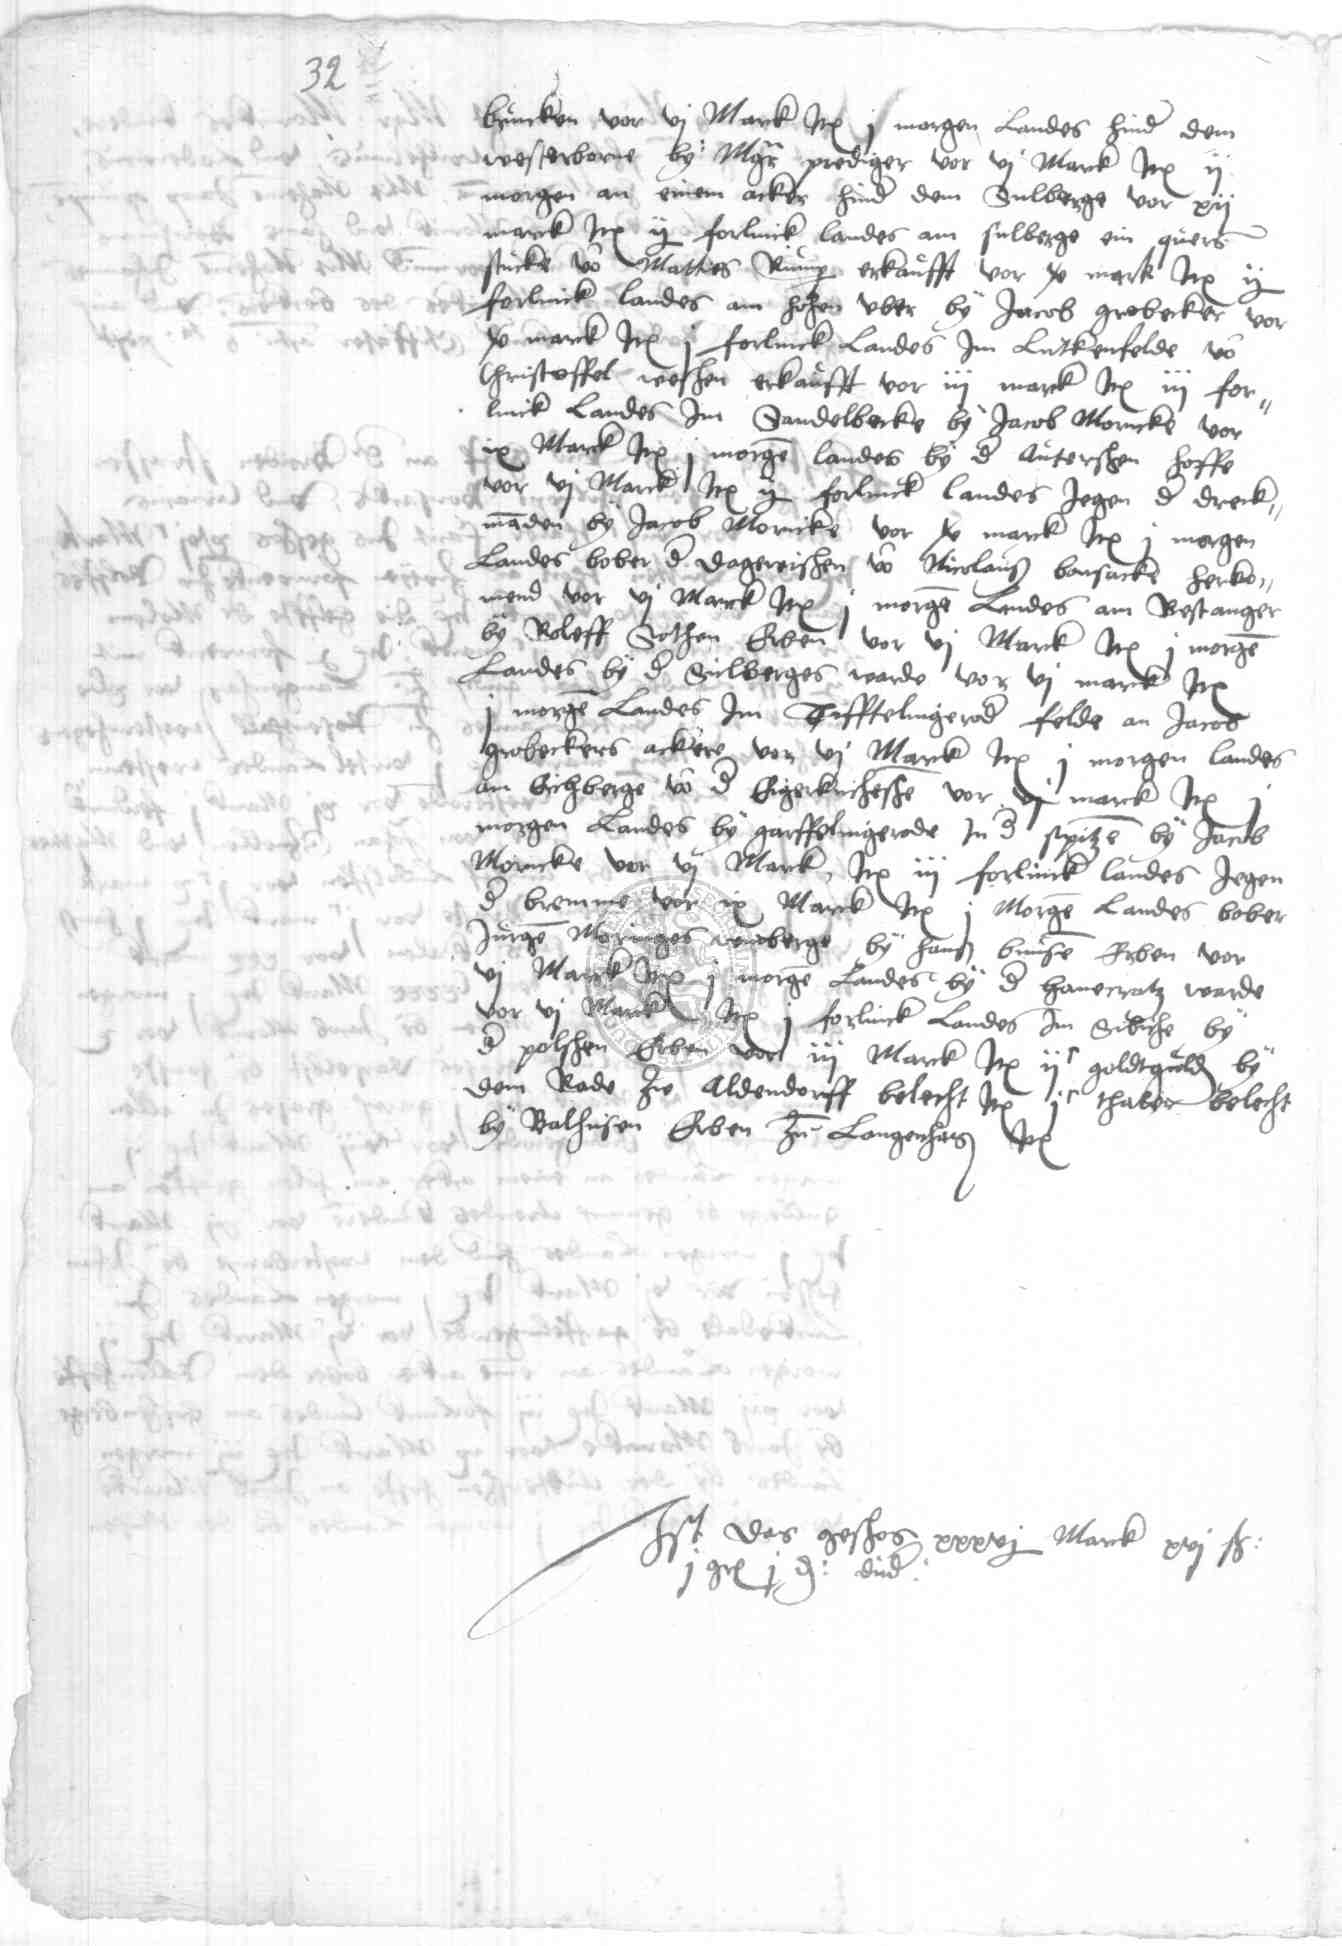 32
brincken vor vj Marck Itx j morgen Landes hind dem
westerborne bÿ Mgr prediger vor vj Marck Itx ij
morgen an einem acker hind dem Sulberge vor xij
marck Itx ij forlinck landes am sulberge ein quers
stucke vo Matties Rump erkaufft vor x mark Itx ij
forlinck landes am hohen vber bÿ Jacob grobecker vor
marck Itx j forlinck Landes Im Lutkenfelde vo
Christoffel weshen erkaufft vor iij marck Itx iij for„
linck Landes Im Sandelbecke bÿ Jacob Moricke vor
ix Marck Itx j morge landes bÿ d hoffe
vor vj Marck Itx ij forlinck landes Jegen d dreck„
maden bÿ Jacob Moricke vor marck Itx j morgen
Landes bober d dagereischen vo Nicolaus bonsacke herko„
mend vor vj Marck Itx j morge Landes am Bestanger
bÿ Roleff Sothen Erben vor vj Marck Itx j morge
Landes bÿ d Sulberges warde vor vj marck Itx
j morge Landes Im Tifftelingerod felde an Jacob
grobeckers ackere vor vj Marck Itx j morgen landes
an Eichberge vo d vor vj marck Itx j
morgen Landes bÿ garffelingerode In d spitze bÿ Jacob
Moricke vor vj Marck, Itx iij forlinck landes Jegen
d bremme vor ix Marck Itx j Morge Landes bober
Jurge Moringes winberge bÿ hans Erben vor
vj Marck Itx j morge Landes bÿ d hanecratz warde
vor vj Marck Itx j forlinck Landes Im Sibiche bÿ
d polshen Erben vor iij Marck Itx ij goldtguld bÿ
dem Rade zu Aldendorff belecht Itx j thaler belecht
bÿ Balhusen Erben Zu Langenhag Itx
Ist das geshos xxxvj Marck xvj ß:
j gr j d: dud: